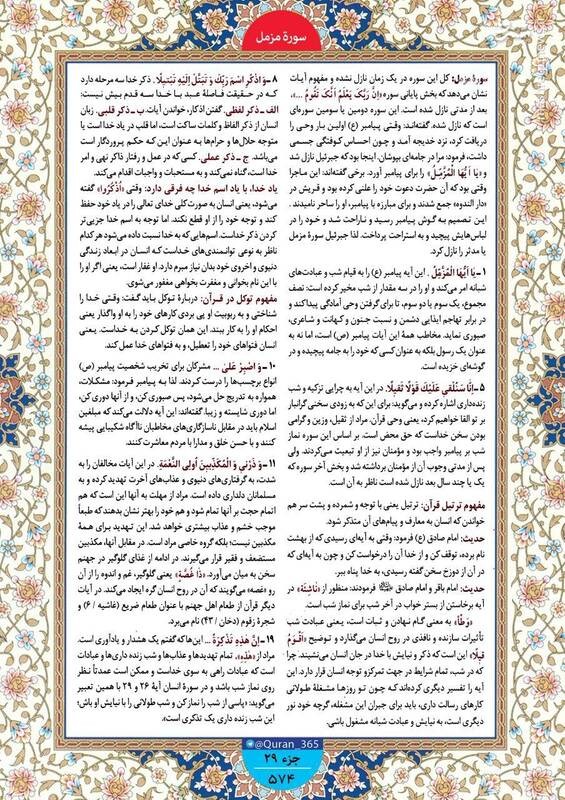 سورهٔ مزمل
سورهٔ مزمل: کل این سوره در یک زمان نازل نشده و مفهوم آیات
نشان می‌دهد که بخش پایانی سوره «إِنَّ رَبَّكَ يَعْلَمُ أَنَّكَ تَقُومُ ...»،
بعد از مدتی نازل شده است. این سوره دومین یا سومین سوره‌ای
است که نازل شده. گفته‌اند: وقتی پیامبر (ع) اولین بار وحی را
دریافت کرد، نزد خدیجه آمد و چون احساس کوفتگی جسمی
داشت، فرمود: مرا در جامه‌ای بپوشان. اینجا بود که جبرئیل نازل شد
و «يَا أَيُّهَا الْمُزَّمِّلُ» را برای پیامبر آورد. برخی گفته‌اند: این ماجرا
وقتی بود که آن حضرت دعوت خود را علنی کرده بود و قریش در
«دار الندوه» جمع شدند و برای مبارزه با پیامبر، او را ساحر نامیدند.
این تصمیم به گوش پیامبر رسید و ناراحت شد و خود را در
لباس‌هایش پیچید و به استراحت پرداخت. لذا جبرئیل سورهٔ مزمل
یا مدثر را نازل کرد.
۱- يَا أَيُّهَا الْمُزَّمِّلُ. این آیه پیامبر (ع) را به قیام شب و عبادت‌های
شبانه امر می‌کند و او را در سه مقدار از شب مخیر کرده است: نصف
مجموع، یک سوم یا دو سوم، تا برای گرفتن وحی آمادگی پیدا کند و
در برابر تهاجم ایذایی دشمن و نسبت جنون و کهانت و شاعری،
صبوری نماید. مخاطب همهٔ این آیات پیامبر (ص) است، اما نه به
عنوان یک رسول بلکه به عنوان کسی که خود را به جامه پیچیده و در
گوشه‌ای خزیده است.
۵- إِنَّا سَنُلْقِي عَلَيْكَ قَوْلًا ثَقِيلًا. در این آیه به چرایی تزکیه و شب
زنده‌داری اشاره کرده و می‌گوید: برای این که به زودی سخنی گرانبار
بر تو القا خواهیم کرد، یعنی وحی قرآن. مراد از ثقیل، وزین و گرامی
بودن سخن خداست که حق محض است. بر اساس این سوره نماز
شب بر پیامبر واجب بود و مؤمنان نیز از او تبعیت می‌کردند. ولی
پس از مدتی وجوب آن از مؤمنان برداشته شد و بخش آخر سوره که
یک یا چند سال بعد نازل شده است ناظر به آن است.
مفهوم ترتیل قرآن: ترتیل یعنی با توجه و شمرده و پشت سر هم
خواندن که انسان به معارف و پیام‌های آن متذکر شود.
حدیث: امام صادق (ع) فرمود: وقتی به آیه‌ای رسیدی که از بهشت
نام برده، توقف کن و از خدا آن را درخواست کن و چون به آیه‌ای که
در آن از دوزخ سخن گفته رسیدی، به خدا پناه ببر.
حدیث: امام باقر و امام صادق فرمودند: منظور از «نَاشِئَةَ» در
آیه برخاستن از بستر خواب در آخر شب برای نماز شب است.
«وَطْأً» به معنی گام نهادن و ثبات است، یعنی عبادت شبانه
تأثیرات سازنده و نافذی در روح انسان می‌گذارد و توضیح «أَقْوَمُ
قِيلًا» این است که ذکر و نیایش با خدا در جان انسان می‌نشیند. چرا
که در شب، تمام شرایط در جهت تمرکز و توجه انسان قرار دارد. این
آیه را تفسیر دیگری کرده‌اند که چون تو روزها مشغلهٔ طولانی
کارهای رسالت داری، باید برای جبران این مشغله، گرچه خود نور
دیگری است، به نیایش و عبادت شبانه مشغول باشی.
۸- وَاذْكُرِ اسْمَ رَبِّكَ وَ تَبَتَّلْ إِلَيْهِ تَبْتِيلًا. ذکر خدا سه مرحله دارد
که در حقیقت فاصلهٔ عبد با خدا سه قدم بیش نیست:
الف - ذکر لفظی، گفتن اذکار، خواندن آیات. ب - ذکر قلبی. زبان
انسان از ذکر الفاظ و کلمات ساکت است، اما قلب در یاد خدا است یا
متوجه حلال‌ها و حرام‌ها به عنوان این که حکم پروردگار است
می‌باشد. ج - ذکر عملی. کسی که در عمل و رفتار ذاکر نهی و امر
خدا است، گناه نمی‌کند و به مستحبات و واجبات اقدام می‌کند.
یاد خدا، با یاد اسم خدا چه فرقی دارد: وقتی «أُذْكُرُوا» گفته
می‌شود، یعنی انسان به صورت کلی خدای تعالی را در یاد خود حفظ
کند و توجه خود را از او قطع نکند. اما توجه به اسم خدا جزیی‌تر
کردن ذکر خداست. اسم‌هایی که به خدا نسبت داده می‌شود هر کدام
ناظر به نوعی توانمندی‌های خداست که انسان در ابعاد زندگی
دنیوی و اخروی خود بدان نیاز مبرم دارد. او غفار است، یعنی اگر او را
با این نام بخوانی و مغفرت بخواهی مغفور می‌شوی.
مفهوم توکل در قرآن: دربارهٔ توکل باید گفت: وقتی خدا را
شناختی و به ربوبیت او پی بردی کارهای خود را به او واگذار یعنی
احکام او را به کار ببند. این همان توکل کردن به خداست. یعنی
انسان فتواهای خود را تعطیل، و به فتواهای خدا عمل کند.
۱۰- وَ اصْبِرْ عَلَىٰ ... مشرکان برای تخریب شخصیت پیامبر (ص)
انواع برچسب‌ها را درست کردند. لذا به پیامبر فرمود: مشکلات،
همواره به تدریج حل می‌شود، پس صبوری کن، و از آنها دوری کن،
اما دوری شایسته و زیبا. گفته‌اند: این آیه دلالت می‌کند که مبلغین
اسلام باید در مقابل ناسازگاری‌های مخاطبان ناآگاه شکیبایی پیشه
کنند و با حسن خلق و مدارا با مردم معاشرت کنند.
۱۱- وَ ذَرْنِي وَ الْمُكَذِّبِينَ أُولِي النَّعْمَةِ. در این آیات مخالفان را به
شدت، به گرفتاری‌های دنیوی و عذاب‌های آخرت تهدید کرده و به
مسلمانان دلداری داده است. مراد از مهلت به آنها این است که هم
اتمام حجت بر آنها تمام شود و هم خود را بهتر نشان بدهند که طبعاً
موجب خشم و عذاب بیشتری خواهد شد. این تهدید برای همهٔ
مکذبین نیست؛ بلکه گروه خاصی مراد است. در مقابل آنها، مکذبین
مستضعف و فقیر قرار می‌گیرند. در ادامه از غذای گلوگیر در جهنم
سخن به میان می‌آورد. «ذَا غُصَّةٍ» یعنی گلوگیر، غم و اندوه را از آن
رو «غصه» می‌گویند که آن در روح انسان گره ایجاد می‌کند. در آیات
دیگر قرآن از طعام اهل جهنم با عنوان طعام ضریع (غاشیه / ۶) و
شجرهٔ زقوم (دخان / ۴۳) نام می‌برد.
۱۹- إِنَّ هَٰذِهِ تَذْكِرَةٌ ... این‌ها که گفتم یک هشدار و یادآوری است.
مراد از «هٰذِهِ»، تمام تهدیدها و عذاب‌ها و شب زنده داری‌ها و عبادات
است که عبادات راهی به سوی خداست و ممکن است عمدتاً نظر
روی نماز شب باشد و در سورهٔ انسان آیهٔ ۲۶ و ۲۹ با همین تعبیر
می‌گوید: «پاسی از شب را نماز کن و شب طولانی را با نیایش او باش؛
این شب زنده داری یک تذکری است».
@Quran_365
جزء ۲۹
۵۷۴